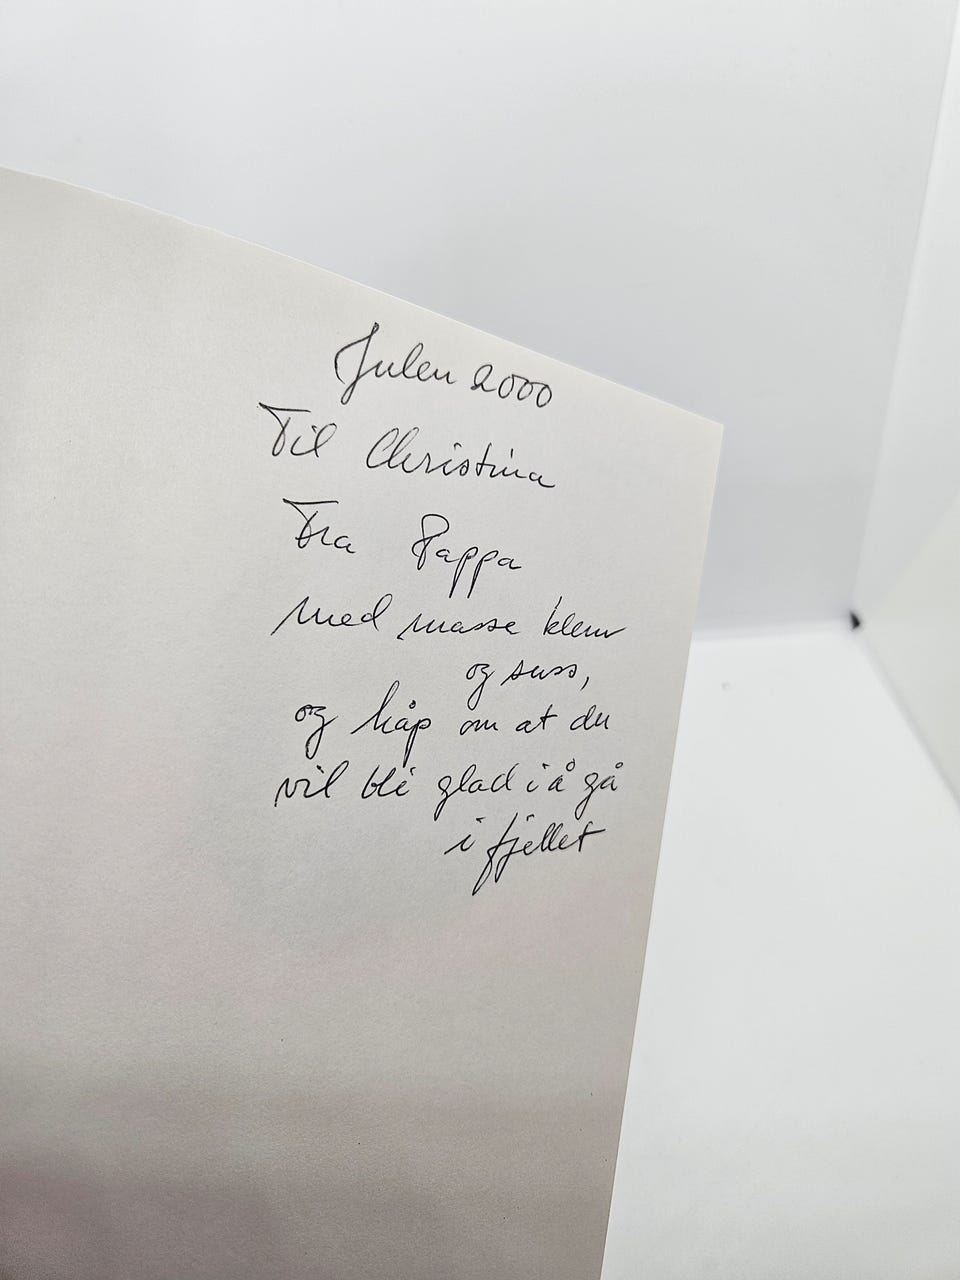 Julen 2000
Til Christina
Fra Pappa
med masse klem
og suss,
og håp om at du
vil bli glad i å gå
i fjellet